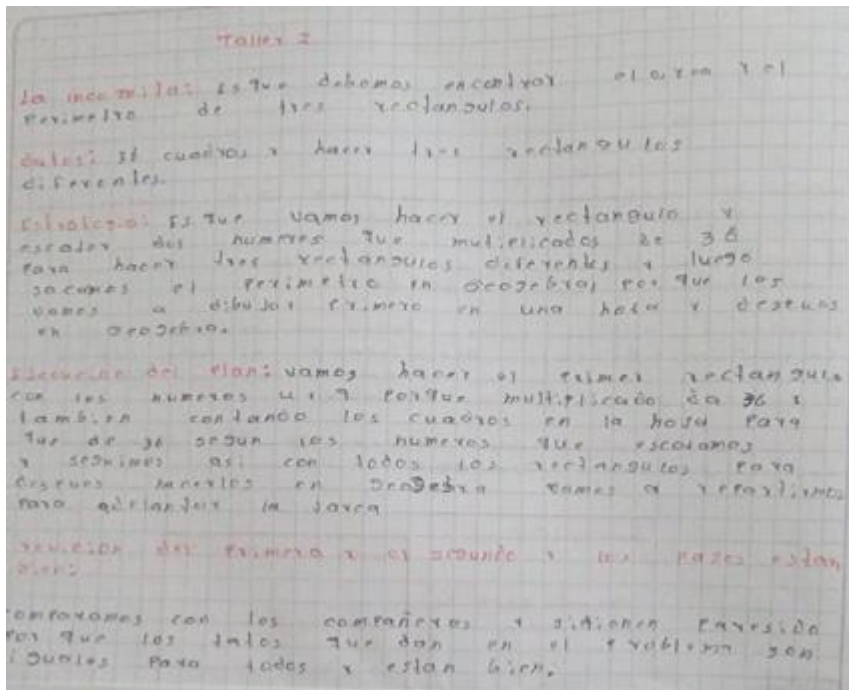 Taller 2
La incognita: Es que debemos encontrar el area y el
Perimetro de tres rectangulos.
datos: 36 cuadros y hacer tres rectangulos
diferentes.
Estrategia: Es que vamos hacer el rectangulo y
escojer dos numeros que multiplicados de 36
Para hacer tres rectangulos diferentes y luego
sacamos el perimetro en Geogebra por que los
vamos a dibujar primero en una hoja y despues
en Geogebra.
Ejecucion del Plan: vamos hacer el primer rectangulo
con los numeros 4 y 9 Porque multiplicado da 36 y
tambien contando los cuadros en la hoja Para
que de 36 segun los numeros que escojamos
y seguimos asi con todos los rectangulos Para
despues hacerlos en Geogebra vamos a repartirnos
Para adelantar la tarea
revicion del Primero y el segundo y los pazos estan
bien:
comparamos con los compañeros y si tienen Paresido
Por que los datos que dan en el Problema son
iguales Para todos y estan bien.